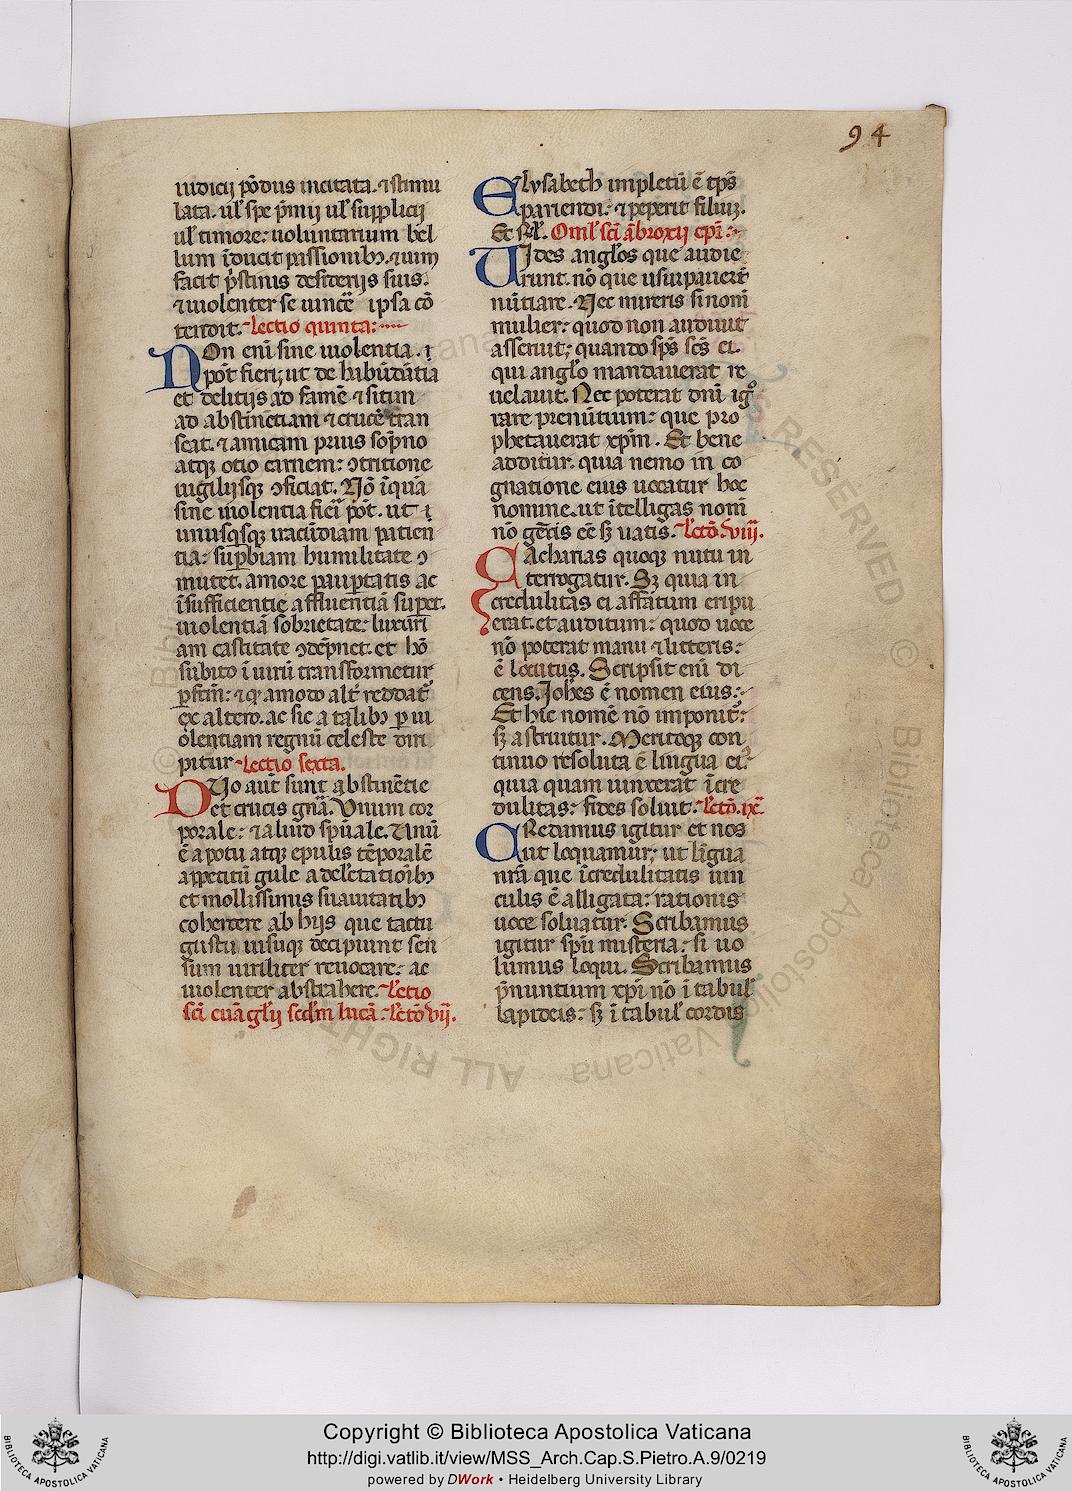 94
iudicij põdus incitata. ⁊ stimu
lata. ul̃ spe p̃mij ul̃ supplicij
ul̃ timore: uoluntarium bel
lum ĩducit passionibꝫ. ⁊ uim
facit p̃stinis desiderijs suis.
⁊ uiolenter se uincẽ ipsa cõ
tendit. Lectio quinta:
Non eni᷑ sine uiolentia. ĩ
põt fieri, ut de habũdãtia
et delitijs ad famẽ ⁊ sitim
ad abstinẽtiam ⁊ crucẽ tran
seat. ⁊ amicam prius sop̃no
atqꝫ otio carnem: ꝯtritione
uigilijsqꝫ ꝯficiat. Nõ ĩquã
sine uiolentia fieri põt. ut ĩ
unusqꝫsqꝫ iracũdiam patien
tia: suꝑbiam humilitate ꝯ
mutet. amore pauꝑtatis ac
ĩsufficientie affluentiã suꝑet.
uiolentiã sobrietate: luxuri
am castitate ꝯdẽpnet. et hõ
subito ĩ uirũ transformetur
ꝑfctm̃: ⁊ qꝫ amodo alt̃ reddat᷑
ex altero. ac sic a talibꝫ ꝑ ui
olentiam regnũ celeste diri
pitur. Lectio sexta.
Duo aut̃ sunt abstinẽtie
et crucis gñã. Unum cor
porale: ⁊ aliud sp̃uale. Unũ
ẽ a potu atqꝫ epulis tẽporalẽ
appetitũ gule a del̃etationibꝫ
et mollissimus suauitatibꝫ
cohercere ab hijs que tactu
gustu uisuqꝫ decipiunt sen
sum uiriliter reuocare: ac
uiolenter abstrahere. Lẽtio
sc̃i euãglij scd̃m lucã: Lẽtõ vij.
Elysabeth impletũ ẽ tp̃s
pariendi: ⁊ peperit filium.
Et rel̃. Omel̃ sc̃i ãbroxij ep̃i:
Uides anglos que audie
runt. nõ que usurpauer̃t
nũtiare. Nec mireris si nom̃
mulier: quod non audiuit
asseruit; quando sp̃s sc̃s ei.
qui anglo mandauerat re
uelauit. Nec poterat dñi ig͂
rare prenũtium: que pro
phetauerat xp̃m. Et bene
additur. quia nemo in co
gnatione eius uocatur hoc
nomine. ut ĩtelligas nom̃
nõ gẽis eẽ sꝫ uatis. Lẽtõ. viij.
Zacharias quoqꝫ nutu in
terrogatur. Sꝫ quia in
credulitas ei affatum eripu
erat. et auditum: quod uoce
nõ poterat manu ⁊ litteris:
ẽ locutus. Scripsit eni᷑ di
cens. Joh̃es ẽ nomen eius:
Et hic nomẽ nõ imponit᷑:
sꝫ astruitur. Meritoqꝫ con
tinuo resoluta ẽ lingua ei᷒:
quia quam uinxerat ĩcre
dulitas: fides soluit. Lẽtõ. ix.
Credamus igitur et nos
ut loquamur; ut lĩgua
nr̃a que ĩcredulitatis uin
culis ẽ alligata: rationis
uoce soluatur. Scribamus
igitur sp̃u misteria: si uo
lumus loqui. Scribamus
p̃nuntium xp̃i nõ ĩ tabul̃
lapideis: sꝫ ĩ tabul̃ cordis
Copyright © Biblioteca Apostolica Vaticana
http://digi.vatlib.it/view/MSS_Arch.Cap.S.Pietro.A.9/0219
powered by DWork • Heidelberg University Library